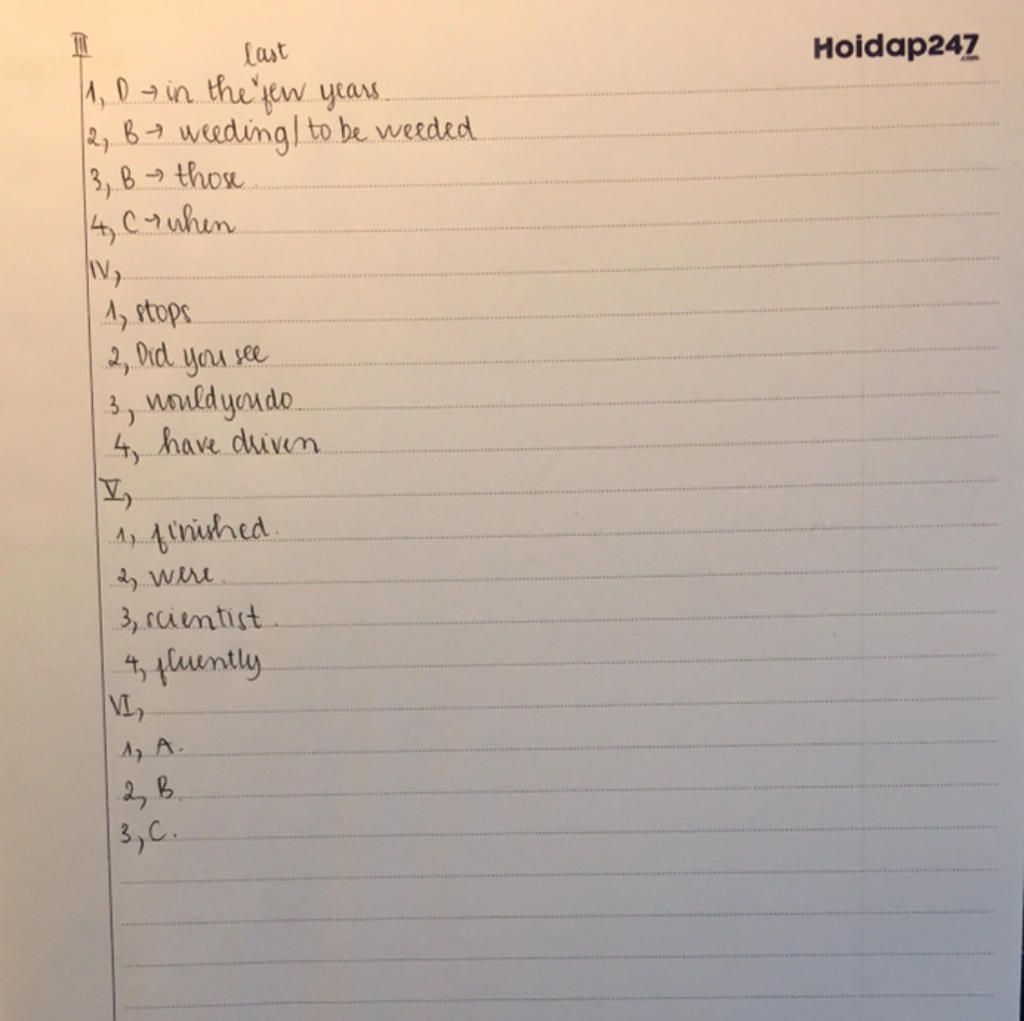 III
Hoidap247
.com
1, D → in the last few years
2, B → weeding / to be weeded
3, B → those
4, C → when
IV,
1, stops
2, Did you see
3, would you do
4, have driven
V,
1, finished.
2, were.
3, scientist.
4, fluently
VI,
1, A.
2, B.
3, C.